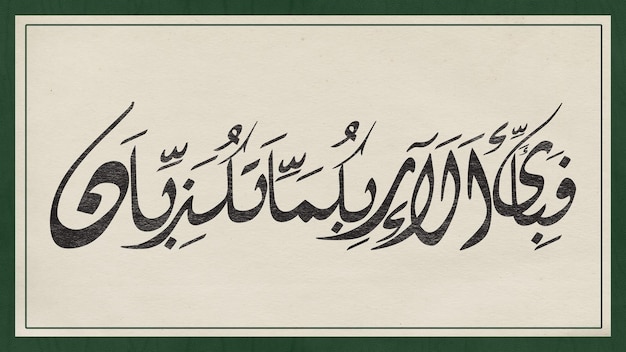 فَبِأَيِّ أَلَآءِ رَبِّكُمَا تُكَذِّبَانِ